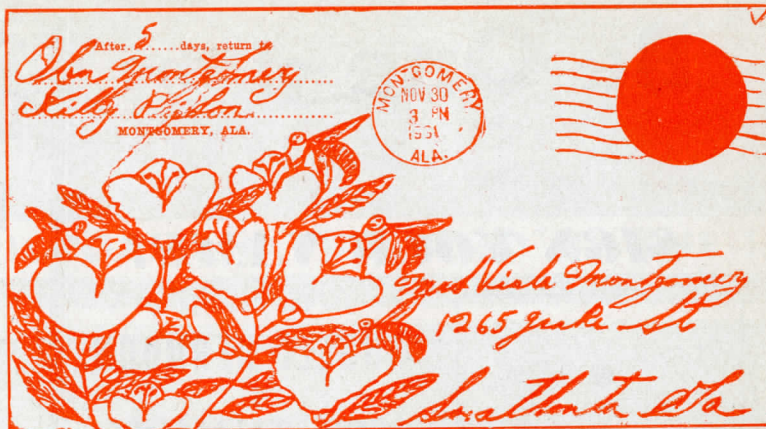 After 5 days, return to
Olen Montgomery
Kilby Prison
MONTGOMERY, ALA.
MONTGOMERY
NOV 30
3 PM
1931
ALA.
Mrs Viola Montgomery
1265 St
Ga